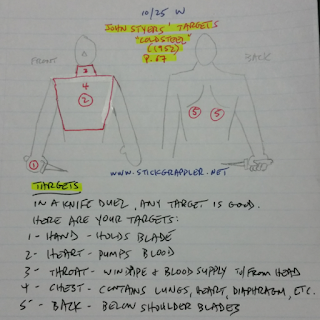 10/25 W
JOHN STYERS' TARGETS
"COLD STEEL"
(1952)
P. 67
FRONT
BACK
6
3
4
2
5 5
1
WWW.STICKGRAPPLER.NET
TARGETS
IN A KNIFE DUEL, ANY TARGET IS GOOD.
HERE ARE YOUR TARGETS:
1 - HAND - HOLDS BLADE
2 - HEART - PUMPS BLOOD
3 - THROAT - WINDPIPE & BLOOD SUPPLY TO/FROM HEAD
4 - CHEST - CONTAINS LUNGS, HEART, DIAPHRAGM, ETC.
5 - BACK - BELOW SHOULDER BLADES